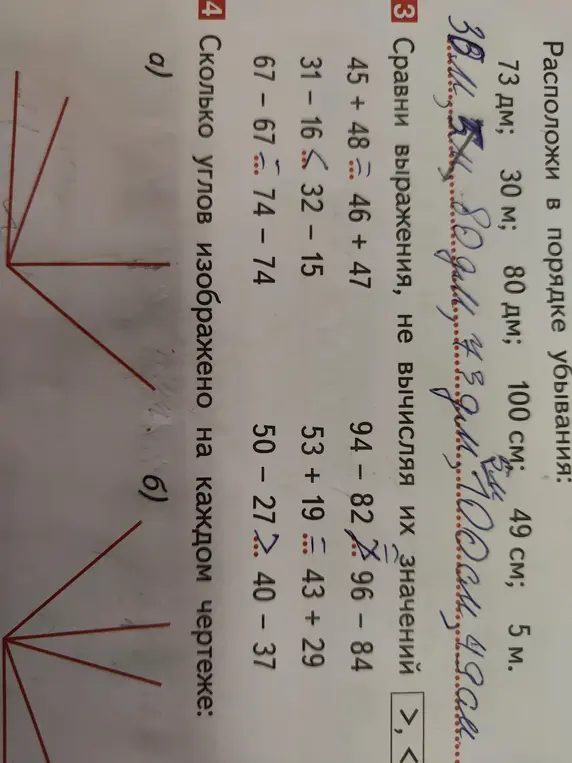 Расположи в порядке убывания:
73 дм; 30 м; 80 дм; 100 см; 49 см; 5 м.
30 м, 80 дм, 73 дм, 5 м 100 см, 49 см
3 Сравни выражения, не вычисляя их значений >, <
45 + 48 = 46 + 47 94 – 82 = 96 – 84
31 – 16 < 32 – 15 53 + 19 = 43 + 29
67 – 67 = 74 – 74 50 – 27 > 40 – 37
4 Сколько углов изображено на каждом чертеже:
а) б)